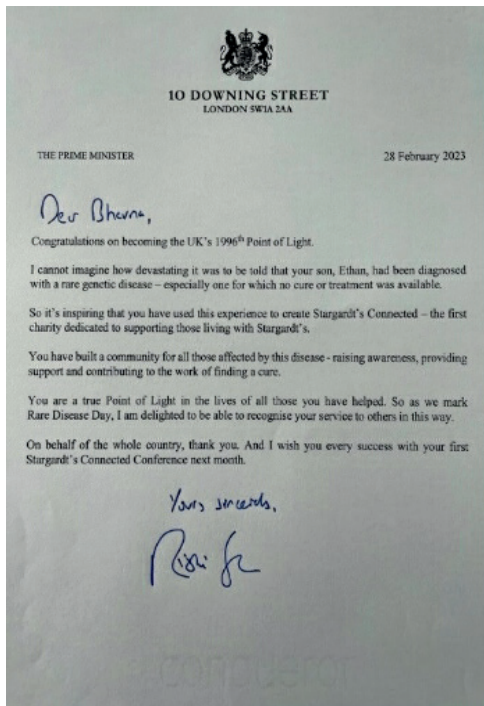 10 DOWNING STREET
LONDON SW1A 2AA
THE PRIME MINISTER
28 February 2023
Dear Bhavna,
Congratulations on becoming the UK's 1996th Point of Light.
I cannot imagine how devastating it was to be told that your son, Ethan, had been diagnosed
with a rare genetic disease – especially one for which no cure or treatment was available.
So it's inspiring that you have used this experience to create Stargardt's Connected – the first
charity dedicated to supporting those living with Stargardt's.
You have built a community for all those affected by this disease - raising awareness, providing
support and contributing to the work of finding a cure.
You are a true Point of Light in the lives of all those you have helped. So as we mark
Rare Disease Day, I am delighted to be able to recognise your service to others in this way.
On behalf of the whole country, thank you. And I wish you every success with your first
Stargardt's Connected Conference next month.
Yours sincerely,
Rishi S
conqueror